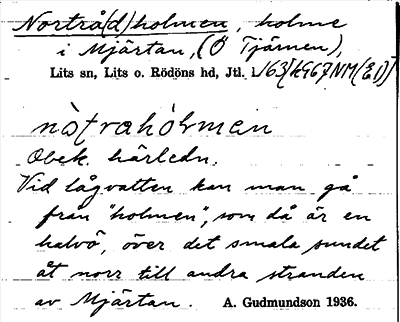 Nortrå(d)holmen, holme
i Mjärtan, (Ö Tjärnen),
Lits sn, Lits o. Rödöns hd, Jtl.
nòtrahólmen
Obek. härledn.
Vid lågvatten kan man gå
från "holmen", som då är en
halvö, över det smala sundet
åt norr till andra stranden
av Mjärtan. A. Gudmundson 1936.